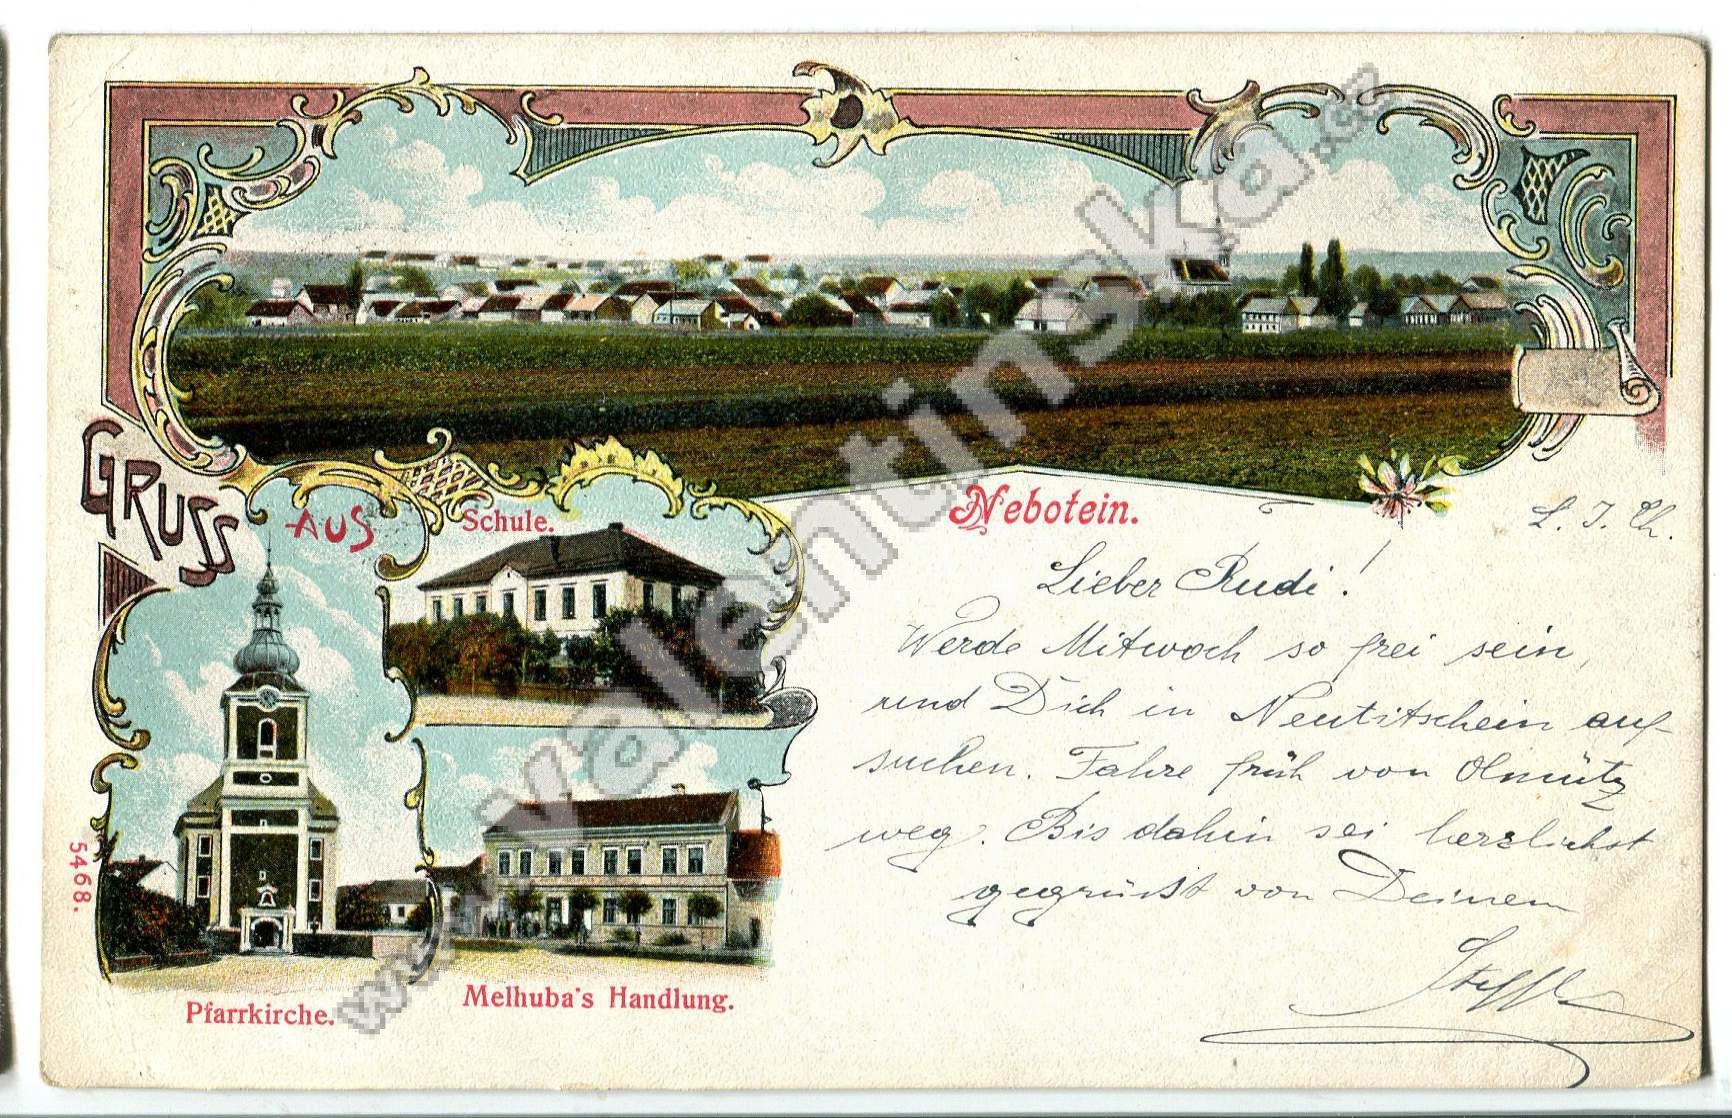 GRUSS
AUS
Schule.
Nebotein.
L. J. Ch.
Lieber Rudi!
Werde Mitwoch so frei sein,
und Dich in Neutitschein auf-
suchen. Fahre früh von Olmütz
weg. Bis dahin sei herzlichst
gegrüßt von Deinem
5468.
Pfarrkirche.
Melhuba's Handlung.
www.valentinska.cz